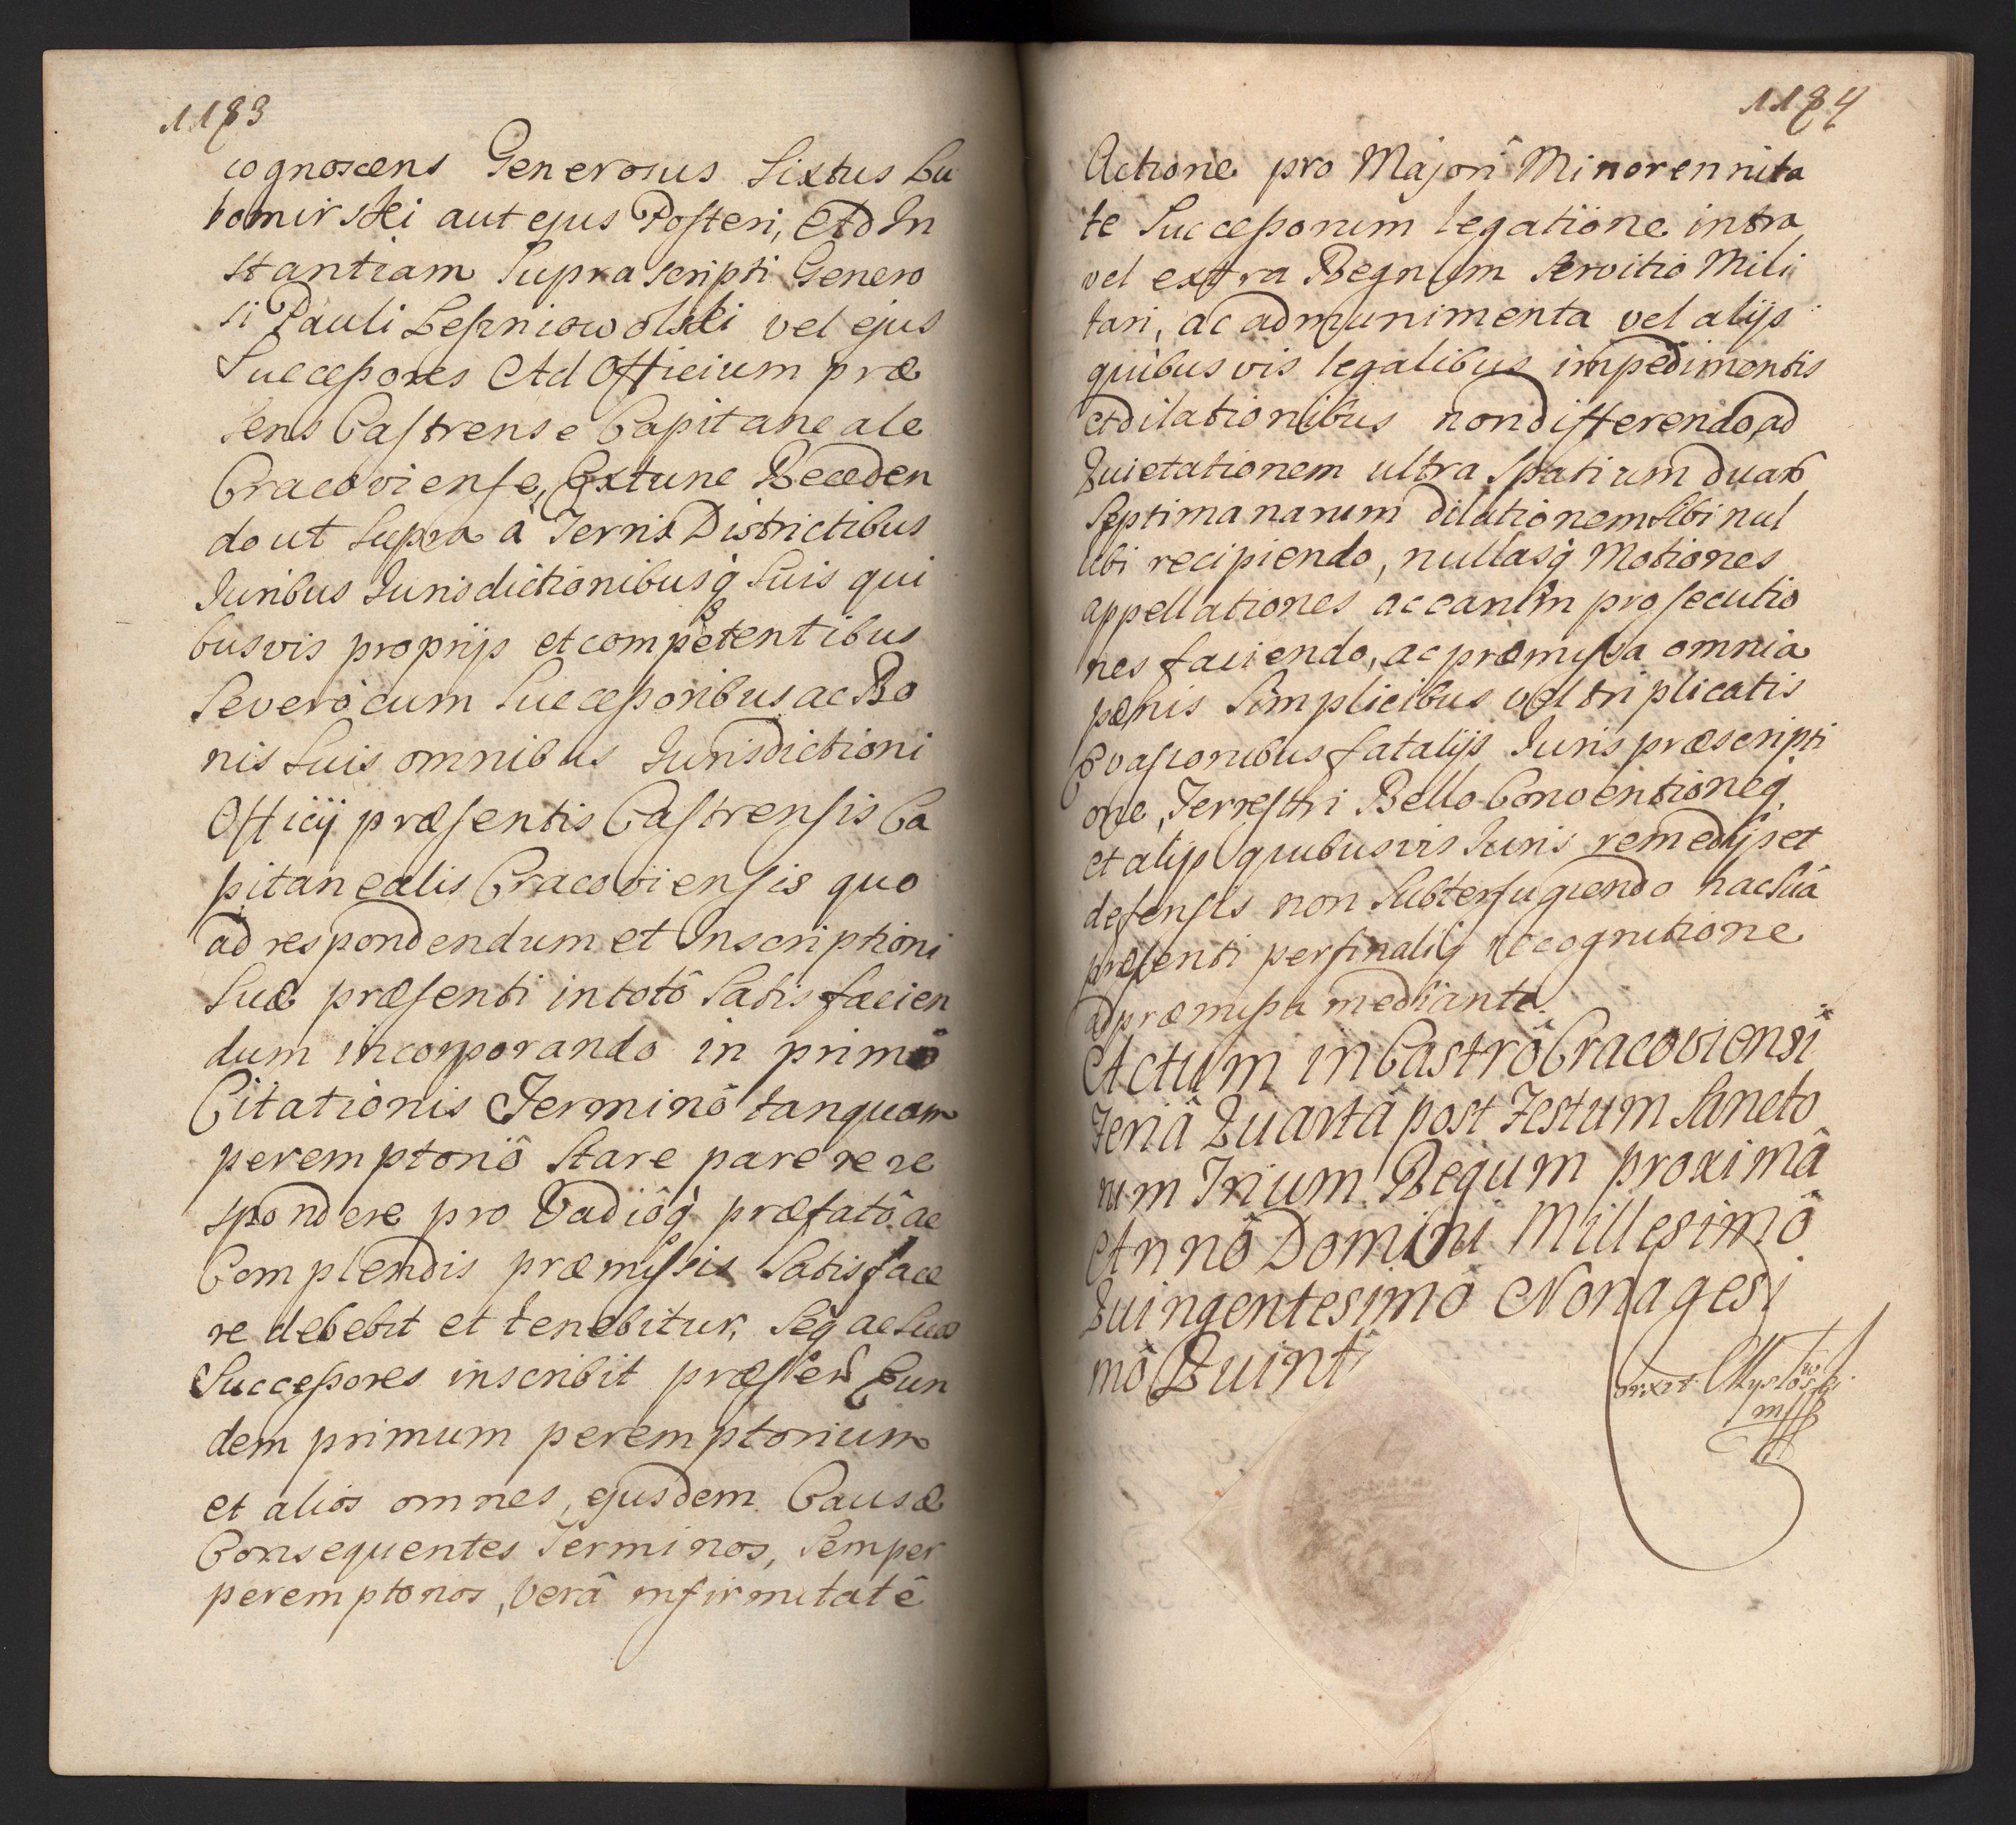 1183
cognoscens Generosus Sixtus Lu
bomirski aut ejus Posteri, Ad In
stantiam Suprascripti Genero
si Pauli Leśniowolski vel ejus
Successores Ad Officium præ
sens Castrense Capitaneale
Cracoviense, Extunc Receden
do ut Supra à Terris Districtibus
Juribus Jurisdictionibusq̀ Suis qui
busvis proprijs et competentibus
Severò cum Successoribus ac Bo
nis Suis omnibus Jurisdictioni
Officij præsentis Castrensis Ca
pitanealis Cracoviensis quo
ad respondendum et Inscriptioni
Suæ præsenti in totô Satisfacien
dum incorporando in primô
Citationis Terminô tanquam
peremptoriô Stare parere re
spondere pro Vadiôq̀ præfatô ac
Complendis præmissis Satisface
re debebit et tenebitur, Seq̀ ac Suos
Successores inscribit præsens Eun
dem primum peremptorium
et alios omnes, ejusdem Causæ
Consequentes Terminos, Semper
peremptorios, Verâ infirmitatê
1184
Actione pro Majori Minorennita
te Successorum legatione intra
vel extra Regnum Servitio Mili
tari, ac ad munimenta vel alijs
quibusvis legalibus impedimentis
et dilationibus non differendo, ad
Quietationem ultra Spatium duar̃
Septimanarum dilationem Sibi nul
libi recipiendo, nullasq̀ Motiones
appellationes ac earum prosecutio
nes faciendo, ac præmissa omnia
pænis Simplicibus vel triplicatis
Evasionibus fatalijs Juris præscripti
one, Terrestri Bello Conventioneq̀
et alijs quibusvis Juris remedijs et
defensis non Subterfugiendo hac Suâ
præsenti perfinaliq̀ recognitione
ad præmissa mediante.
Actum in Castrô Cracoviensi
Feriâ Quartâ post Festum Sancto
rum Trium Regum proximâ
Annô Domini Millesimô
Quingentesimô Nonagesi
mô Quint
mpp